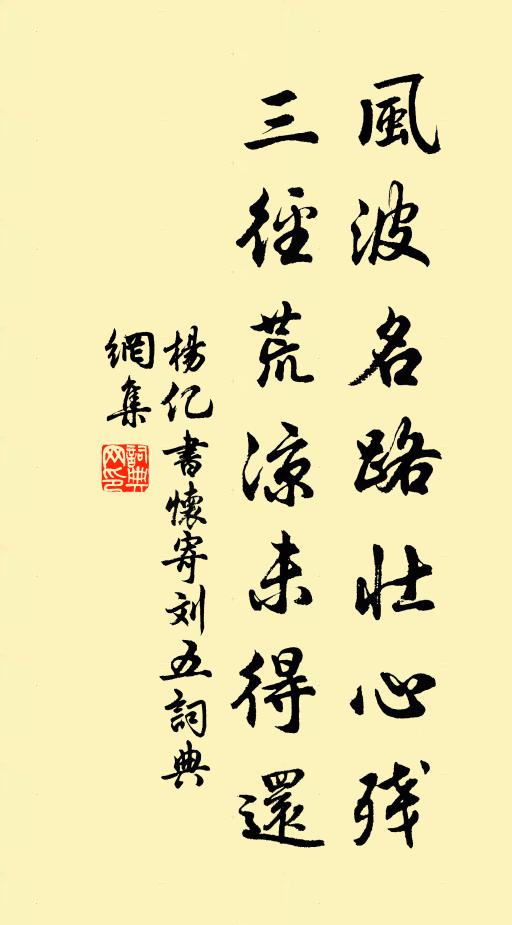 風波名路壮心残
三徑荒涼未得還
楊亿書懷寄刘五詞典
網集
詞典
网印